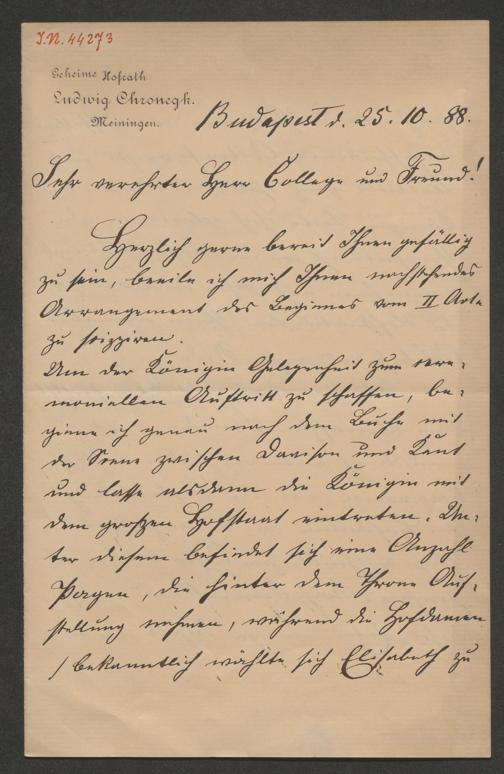 I.N. 44273
Geheime Hofrath
Ludwig Chronegk.
Meiningen.
Budapest d. 25. 10. 88.
Sehr verehrter Herr College und Freund!
Herzlich gerne bereit Ihnen gefällig
zu sein, beeile ich mich Ihnen nachstehendes
Arrangement des Beginnes vom II Acte
zu skizziren.
Um der Königin Gelegenheit zum cere-
moniellen Auftritt zu schaffen, be-
ginne ich genau nach dem Buche mit
der Scene zwischen Davison und Kent
und lasse alsdann die Königin mit
dem großen Hofstaat eintreten. Un-
ter diesem befindet sich eine Anzahl
Pagen, die hinter dem Throne Auf-
stellung nehmen, während die Hofdamen
/ bekanntlich wählte sich Elisabeth zu